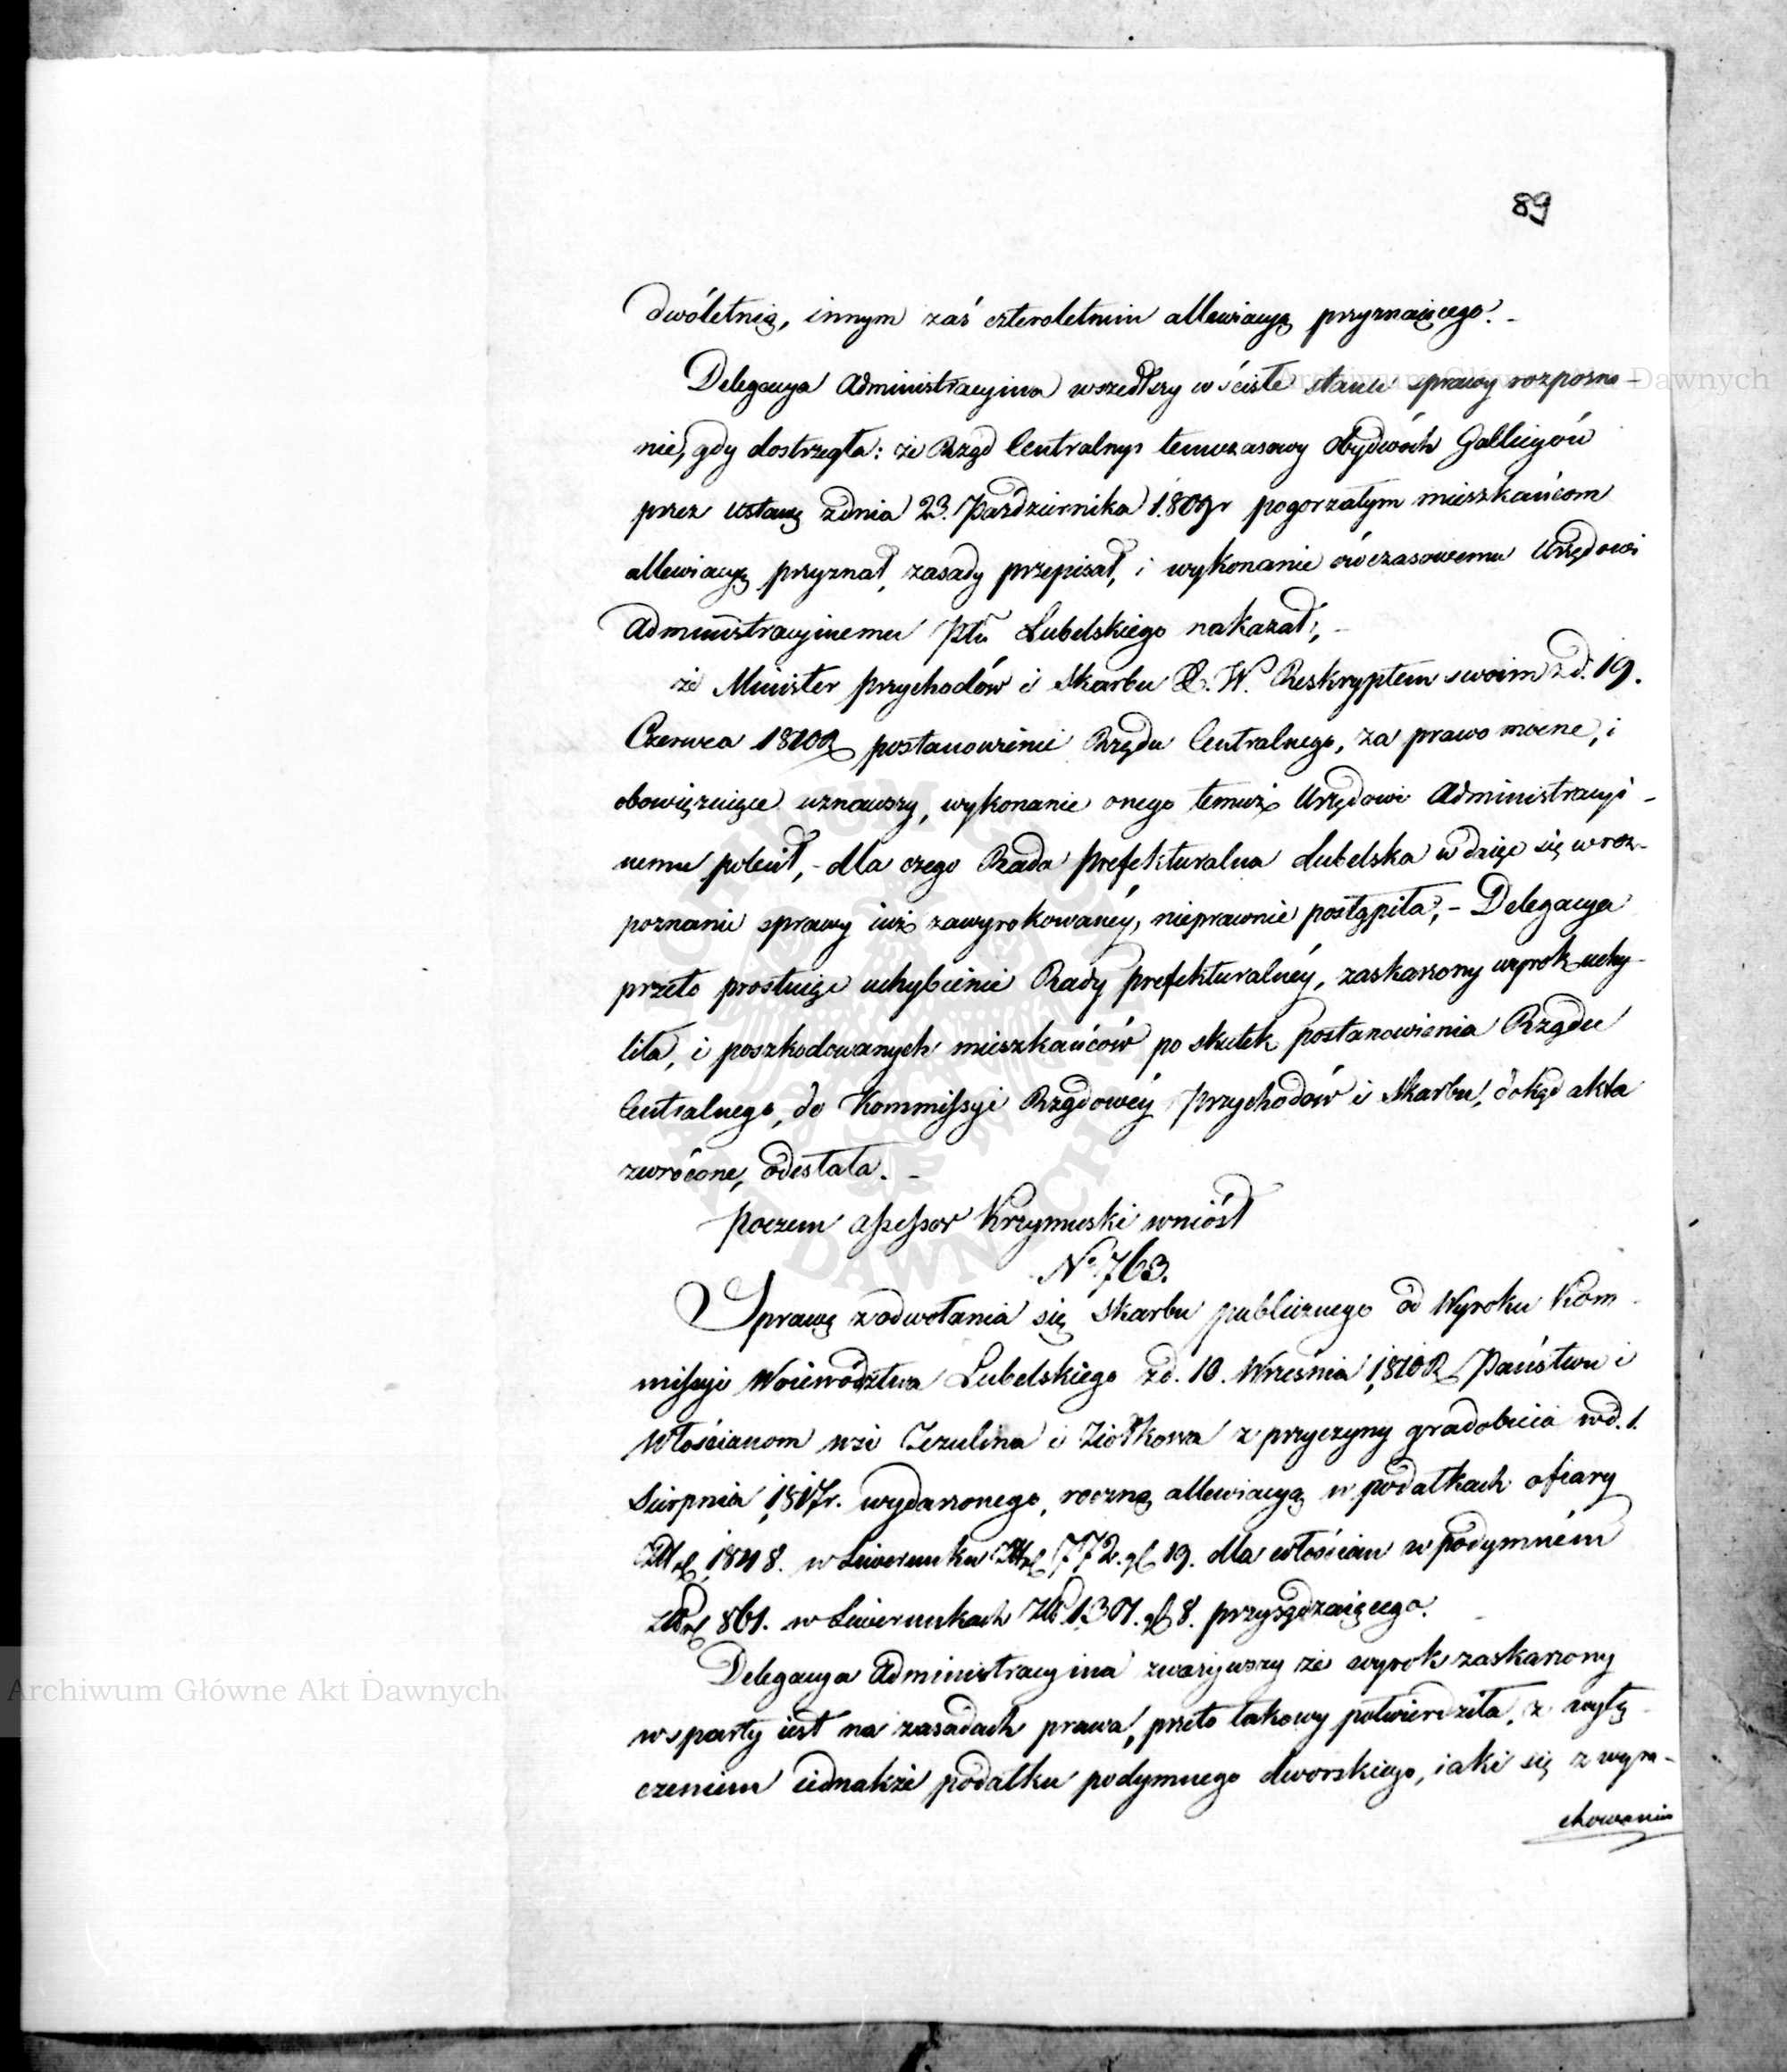 89
dwóletnią, innym zaś czteroletnią allewiacyą przyznaiącego. -
Delegacya Administracyina wszedłszy w ściśłe stanu sprawy rozpozna-
nie, gdy dostrzegła: że Rząd Centralny temczasowy obydwóch Gallicyów
przez ustawę zdnia 23. Października 1809r pogorzałym mieszkańcom
allewiacyą przyznał, zasady przepisał, i wykonanie ówczasowemu Urzędowi
Administracyinemu Ptu Lubelskiego nakazał, -
że Minister Przychodów i Skarbu X. W. Reskryptem swoim z d. 19.
Czerwca 1810R postanowienie Rządu Centralnego, za prawo mocne, i
obowięzuiące uznawszy, wykonanie onego temuż Urzędowi Administracyi-
nemu polecił, - dla czego Rada Prefekturalna Lubelska wdaiąc się w roz-
poznanie sprawy iuż zawyrokowanéy, nieprawnie postąpiła, - Delegacya
przeto prostuiąc uchybienie Rady prefekturalnéy, zaskarzony wyrok uchy-
liła, i poszkodowanych mieszkańców po skutek postanowienia Rządu
Centralnego, do Kommissyi Rządowéy Przychodów i Skarbu, dokąd akta
zwrócone, odesłała. -
Poczem Assessor Krzymuski wniósł
No 763.
Sprawę z odwołania się Skarbu publicznego od Wyroku Kom-
missyi Woiewództwa Lubelskiego z d. 10. Września 1810R Państwu i
Włościanom wsi Jezulina i Ziołkowa z przyczyny gradobicia w d. 1.
Sierpnia 1817r. wydarzonego, roczną allewiacyą w podatkach ofiary
1848. w Liwerunku 772. gr 19. dla włościan w podymném
861. w Liwerunkach Złp. 1301. gr 8. przysądzaiącego.
Delegacya Administracyina zwazywszy że wyrok zaskarzony
wsparty iest na zasadach prawa, przeto takowy potwierdziła, z wyłą-
czeniem iednakże podatku podymnego dworskiego, iaki się z wyra-
chowania
Archiwum Główne Akt Dawnych